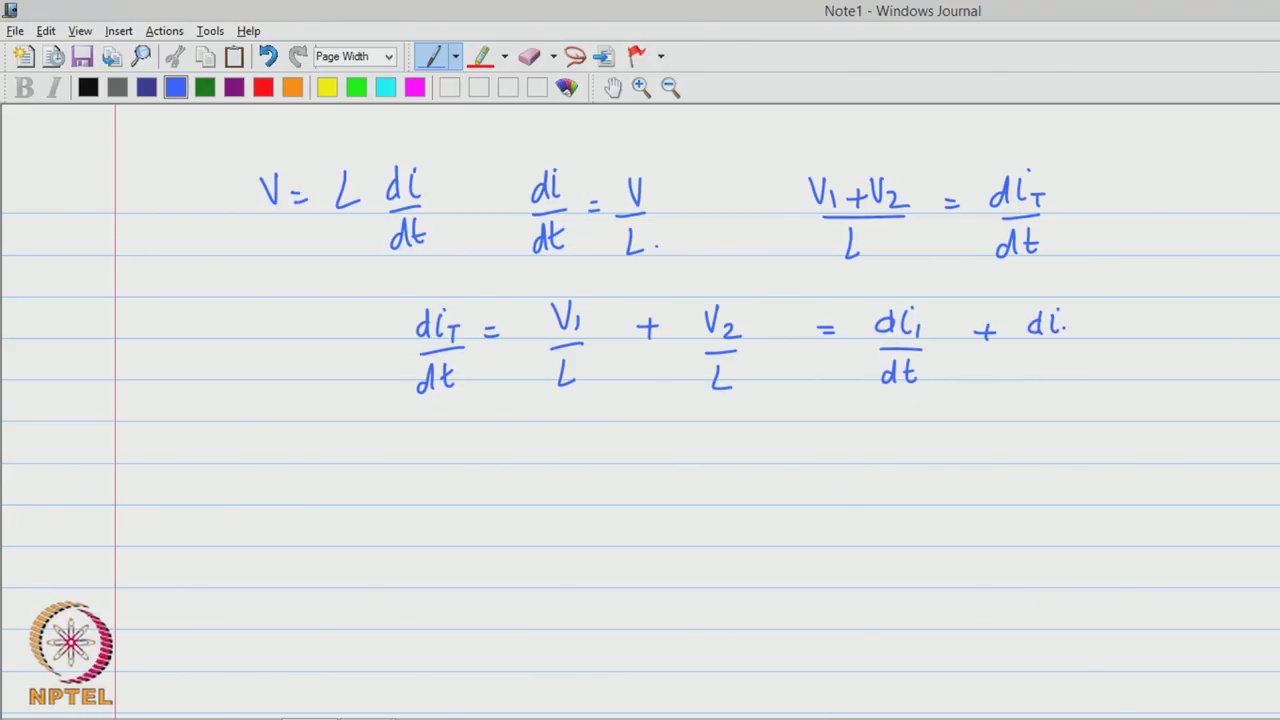 Note1 - Windows Journal
File Edit View Insert Actions Tools Help
Page Width
B I
V = L di/dt di/dt = V/L. V1+V2/L = diT/dt
diT/dt = V1/L + V2/L = di1/dt + di
NPTEL